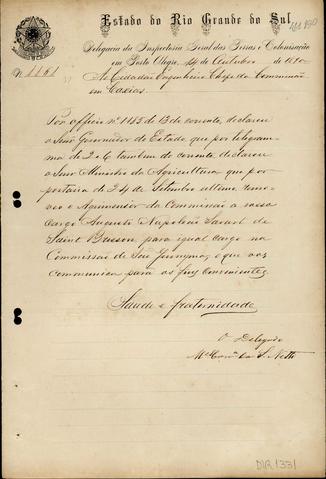 Estado do Rio Grande do Sul
Delegacia da Inspectoria Geral das Terras e Colonisação
em Porto Alegre, 14 de Outubro de 1890
Nº 1161
Ao Cidadão Engenheiro Chefe da Commissão
em Caxias
Por officio nº 1183 de 13 do corrente, declarou
o Snr. Governador do Estado, que por telegram-
ma de 2 e 6 tambem do corrente declarou
o Snr. Ministro da Agricultura que por
portaria de 24 de Setembro ultimo, remo-
veo o Agrimensor da Commissão a vosso
cargo Augusto Napoleão
de
Saint Brisson para igual cargo na
Commissão de São Jeronymo, o que vos
communico para os fins convenientes.
Saude e fraternidade
O Delegado
Netto
DVR 1331